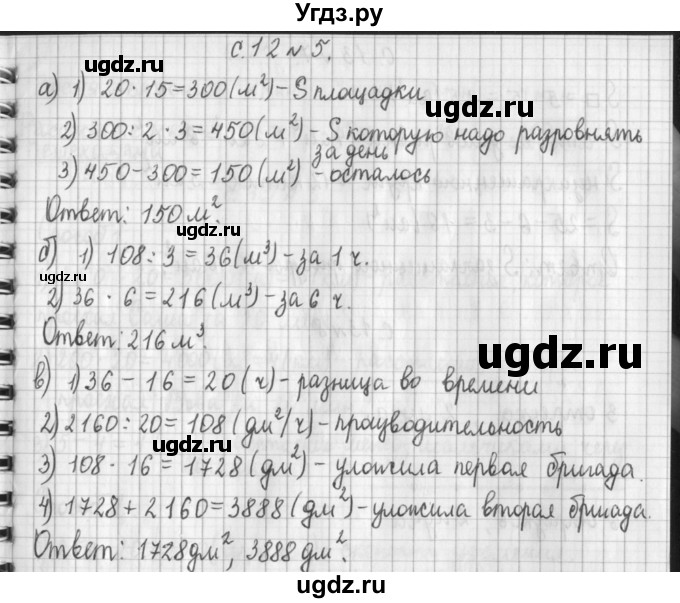 Угдз.ру
с. 12 № 5.
а) 1) 20 · 15 = 300 (м²) – S площадки
2) 300 : 2 · 3 = 450 (м²) – S которую надо разровнять
за день
3) 450 – 300 = 150 (м²) – осталось
Ответ: 150 м².
б) 1) 108 : 3 = 36 (м³) – за 1 ч.
2) 36 · 6 = 216 (м³) – за 6 ч.
Ответ: 216 м³.
в) 1) 36 – 16 = 20 (ч) – разница во времени
2) 2160 : 20 = 108 (дм²/ч) – производительность
3) 108 · 16 = 1728 (дм²) – уложила первая бригада.
4) 1728 + 2160 = 3888 (дм²) – уложила вторая бригада.
Ответ: 1728 дм², 3888 дм².
ugdz.ru
ugdz.ru
ugdz.ru
ugdz.ru
ugdz.ru
ugdz.ru
ugdz.ru
ugdz.ru